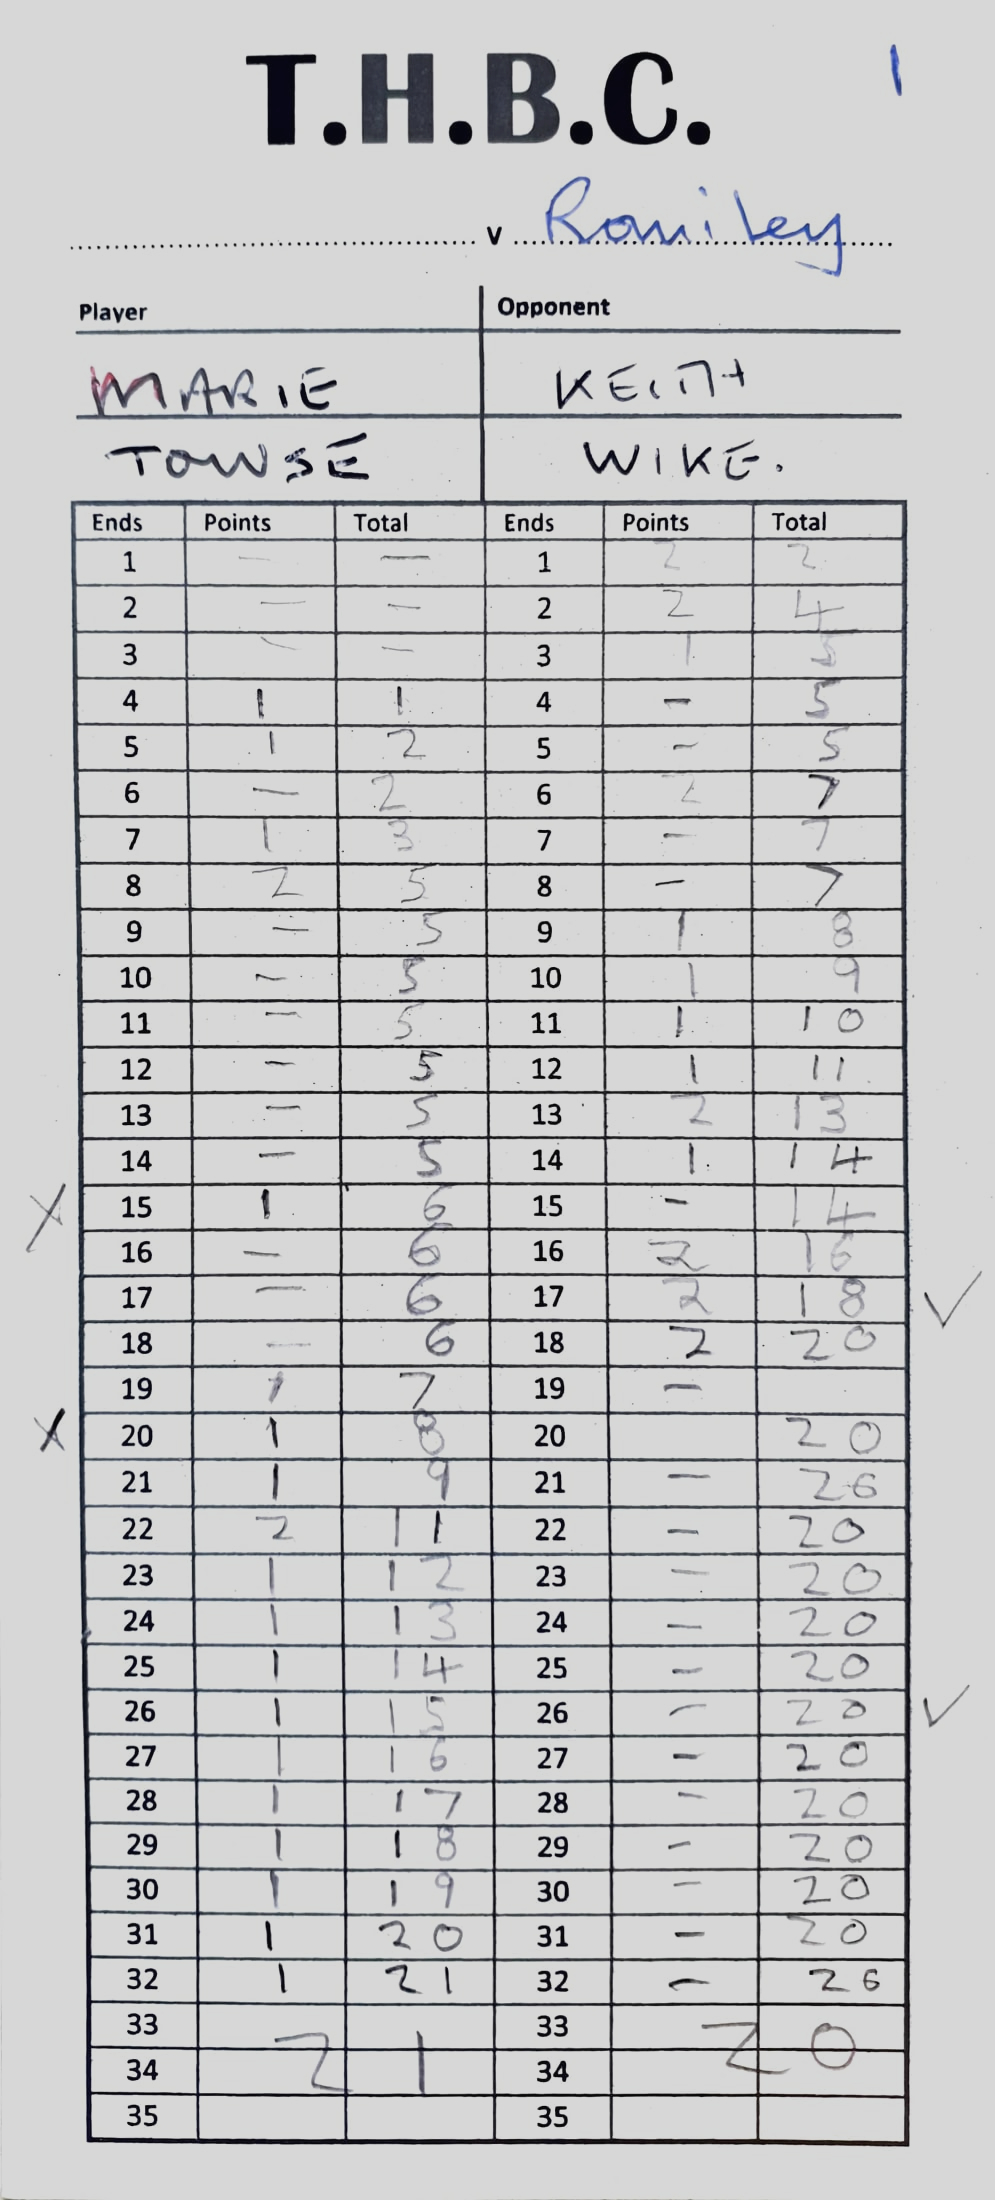 T.H.B.C. 1
v Romiley
Player Opponent
MARIE KEITH
TOWSE WIKE.
Ends Points Total Ends Points Total
1 — — 1 2 2
2 — — 2 2 4
3 — — 3 1 5
4 1 1 4 — 5
5 1 2 5 — 5
6 — 2 6 2 7
7 1 3 7 — 7
8 2 5 8 — 7
9 — 5 9 1 8
10 — 5 10 1 9
11 — 5 11 1 10
12 — 5 12 1 11
13 — 5 13 2 13
14 — 5 14 1 14
X 15 1 6 15 — 14
16 — 6 16 2 16
17 — 6 17 2 18 ✓
18 — 6 18 2 20
19 1 7 19 —
X 20 1 8 20 20
21 1 9 21 — 20
22 2 11 22 — 20
23 1 12 23 — 20
24 1 13 24 — 20
25 1 14 25 — 20
26 1 15 26 — 20 ✓
27 1 16 27 — 20
28 1 17 28 — 20
29 1 18 29 — 20
30 1 19 30 — 20
31 1 20 31 — 20
32 1 21 32 — 20
33 33
21 20
34 34
35 35